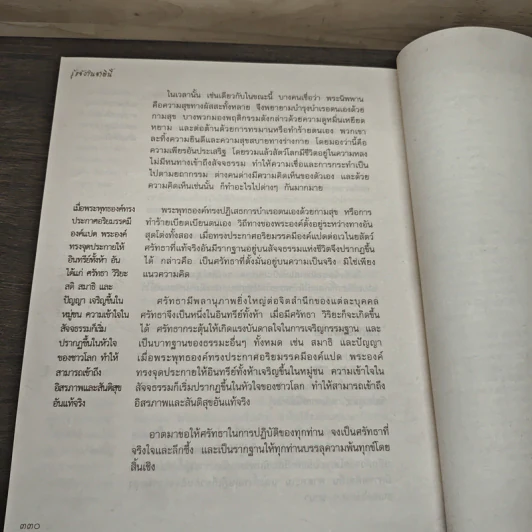 รู้แจ้งในชาตินี้
ในเวลานั้น เช่นเดียวกับในขณะนี้ บางคนเชื่อว่า พระนิพพาน
คือความสุขทางผัสสะทั้งหลาย จึงพยายามบำรุงบำเรอตนเองด้วย
กามสุข บางพวกมองพฤติกรรมดังกล่าวด้วยความดูหมิ่นเหยียด
หยาม และต่อต้านด้วยการทรมานหรือทำร้ายตนเอง พวกเขา
ละทิ้งความยินดีและความสุขสบายทางร่างกาย โดยมองว่านี้คือ
ความเพียรอันประเสริฐ โดยรวมแล้วสัตว์โลกมีชีวิตอยู่ในความหลง
ไม่มีหนทางเข้าถึงสัจธรรม ทำให้ความเชื่อและการกระทำเป็น
ไปตามยถากรรม ต่างคนต่างมีความคิดเห็นของตัวเอง และด้วย
ความคิดเห็นเช่นนั้น ก็ทำอะไรไปต่างๆ กันมากมาย
เมื่อพระพุทธองค์ทรง
ประกาศอริยมรรคมี
องค์แปด พระองค์
ทรงจุดประกายให้
อินทรีย์ทั้งห้า อัน
ได้แก่ ศรัทธา วิริยะ
สติ สมาธิ และ
ปัญญา เจริญขึ้นใน
หมู่ชน ความเข้าใจใน
สัจธรรมก็เริ่ม
ปรากฏขึ้นในหัวใจ
ของชาวโลก ทำให้
สามารถเข้าถึง
อิสรภาพและสันติสุข
อันแท้จริง
พระพุทธองค์ทรงปฏิเสธการบำเรอตนเองด้วยกามสุข หรือการ
ทำร้ายเบียดเบียนตนเอง วิถีทางของพระองค์ตั้งอยู่ระหว่างทางอัน
สุดโต่งทั้งสอง เมื่อทรงประกาศอริยมรรคมีองค์แปดต่อเวไนยสัตว์
ศรัทธาที่แท้จริงอันมีรากฐานอยู่บนสัจธรรมแห่งชีวิตจึงปรากฏขึ้น
ได้ กล่าวคือ เป็นศรัทธาที่ตั้งมั่นอยู่บนความเป็นจริง มิใช่เพียง
แนวความคิด
ศรัทธามีพลานุภาพยิ่งใหญ่ต่อจิตสำนึกของแต่ละบุคคล
ศรัทธาจึงเป็นหนึ่งในอินทรีย์ทั้งห้า เมื่อมีศรัทธา วิริยะก็จะเกิดขึ้น
ได้ ศรัทธากระตุ้นให้เกิดแรงบันดาลใจในการเจริญกรรมฐาน และ
เป็นบาทฐานของธรรมะอื่นๆ ทั้งหมด เช่น สมาธิ และปัญญา
เมื่อพระพุทธองค์ทรงประกาศอริยมรรคมีองค์แปด พระองค์
ทรงจุดประกายให้อินทรีย์ทั้งห้าเจริญขึ้นในหมู่ชน ความเข้าใจใน
สัจธรรมก็เริ่มปรากฏขึ้นในหัวใจของชาวโลก ทำให้สามารถเข้าถึง
อิสรภาพและสันติสุขอันแท้จริง
อาตมาขอให้ศรัทธาในการปฏิบัติของทุกท่าน จงเป็นศรัทธาที่
จริงใจและลึกซึ้ง และเป็นรากฐานให้ทุกท่านบรรลุความพ้นทุกข์โดย
สิ้นเชิง
๓๓๐